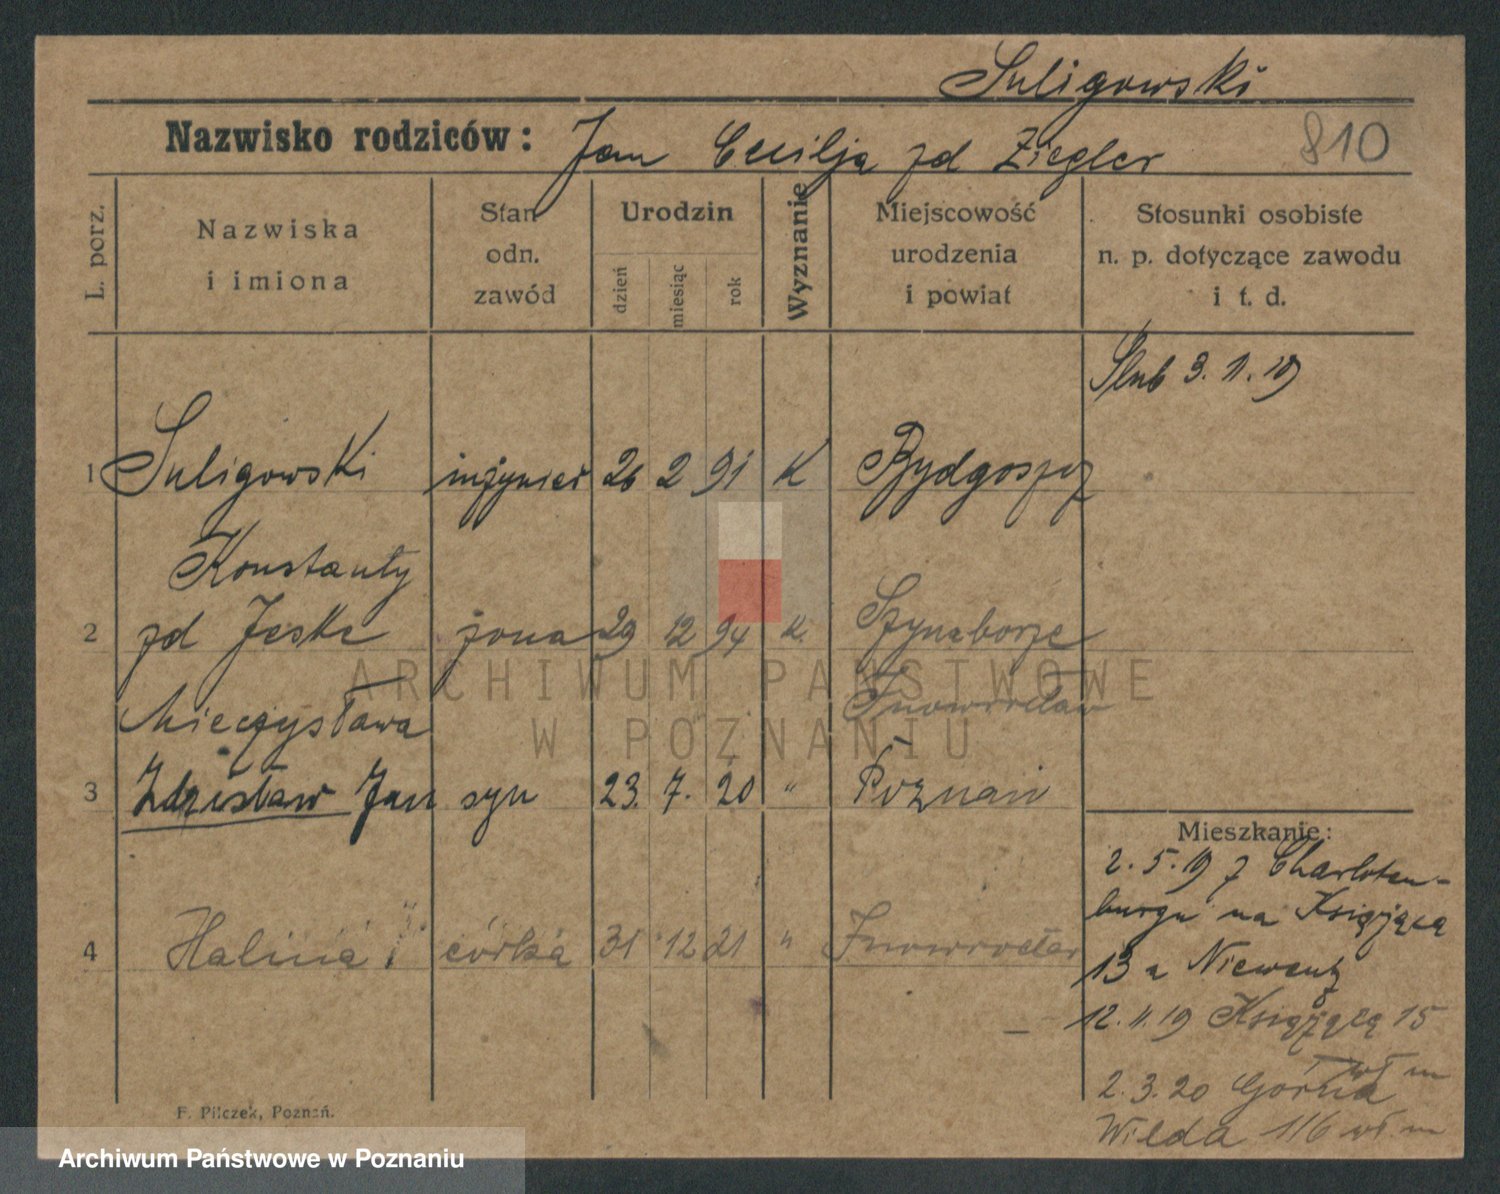 Suligowski
Nazwisko rodziców: Jan Cecilja zd Ziegler 810
L. porz.
Nazwiska
i imiona
Stan
odn.
zawód
Urodzin
dzień
miesiąc
rok
Wyznanie
Miejscowość
urodzenia
i powiat
Stosunki osobiste
n. p. dotyczące zawodu
i t. d.
Ślub 3. 11. 19
1 Suligowski inżynier 26 2 91 K Bydgoszcz
Konstanty
2 zd Jeske żona 29 12 94 K. Szymborze
Mieczysława Inowrocław
3 Zdzisław Jan syn 23. 7. 20 " Poznań
4 Halina córka 31 12 21 " Inowrocław
Mieszkanie:
2. 5. 19 z Charloten-
burgu na Książęcą
13 a Niewent
12. 11. 19 Książęcą 15
wł m
2. 3. 20 Górna
Wilda 116 wł. m
F. Pilczek, Poznań.
ARCHIWUM PAŃSTWOWE
W POZNANIU
Archiwum Państwowe w Poznaniu